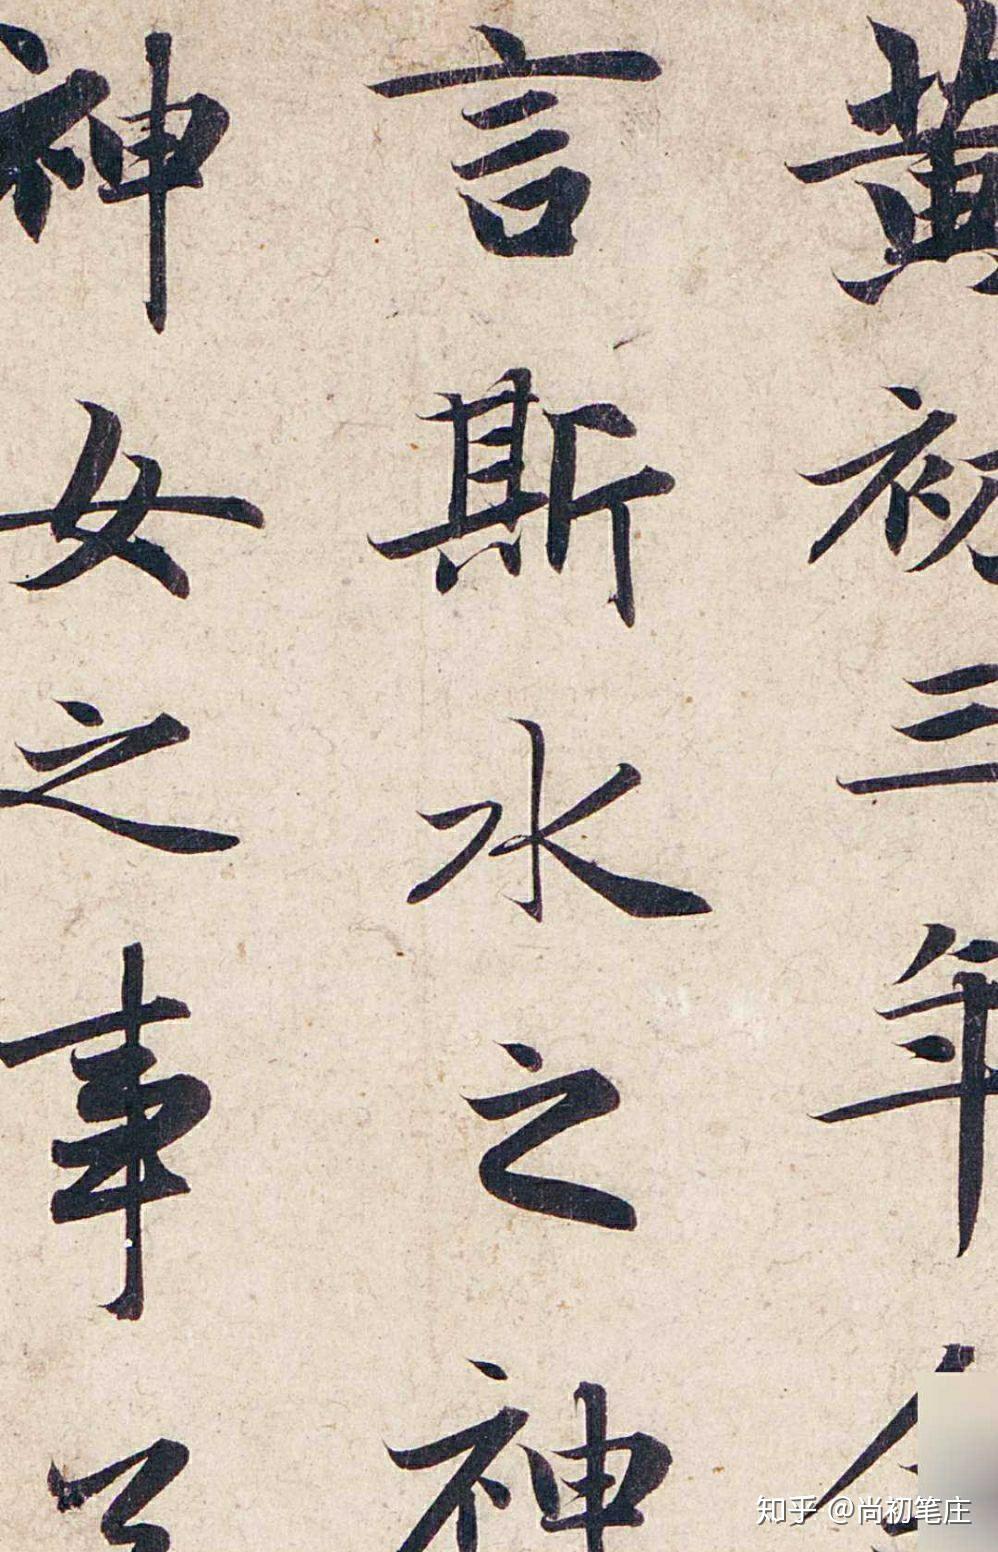 黄初三年余
言斯水之神
神女之事
知乎 @尚初笔庄